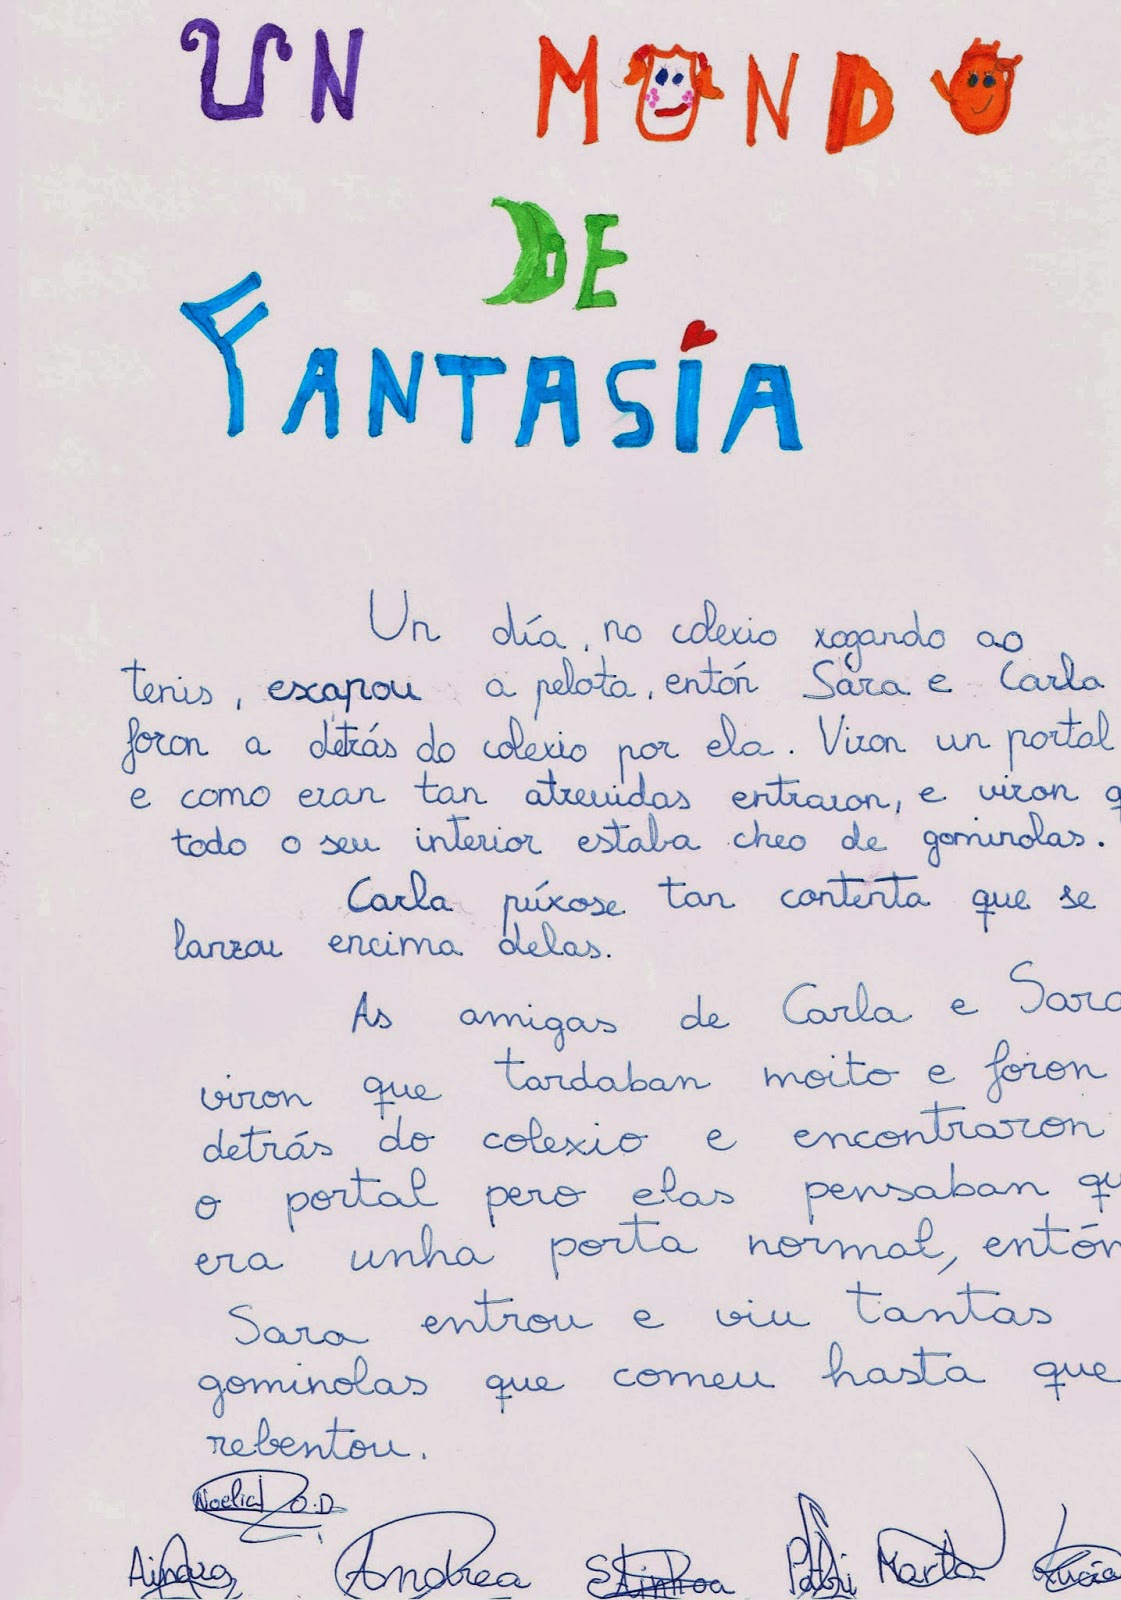 UN MONDO
DE
FANTASÍA
Un día, no colexio xogando ao
tenis, escapou a pelota, entón Sara e Carla
foron a detrás do colexio por ela. Viron un portal
e como eran tan atrevidas entraron, e viron q
todo o seu interior estaba cheo de gominolas.
Carla púxose tan contenta que se
lanzou encima delas.
As amigas de Carla e Sara
viron que tardaban moito e foron
detrás do colexio e encontraron
o portal pero elas pensaban qu
era unha porta normal, entón
Sara entrou e viu tantas
gominolas que comeu hasta que
rebentou.
Noelia O.D.
Ainara Andrea Patri Marta Lucía